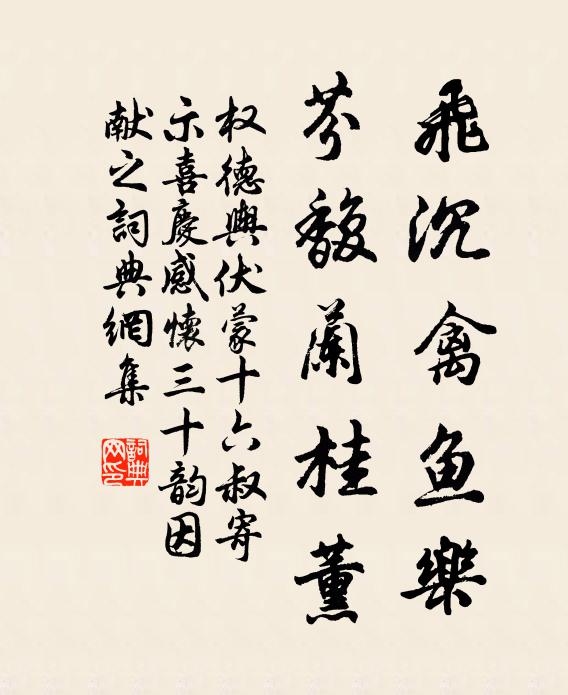 飛沉禽鱼樂
芬馥蘭桂薫
权德輿伏蒙十六叔寄
示喜慶感懷三十韵因
献之詞典網集
詞典網印